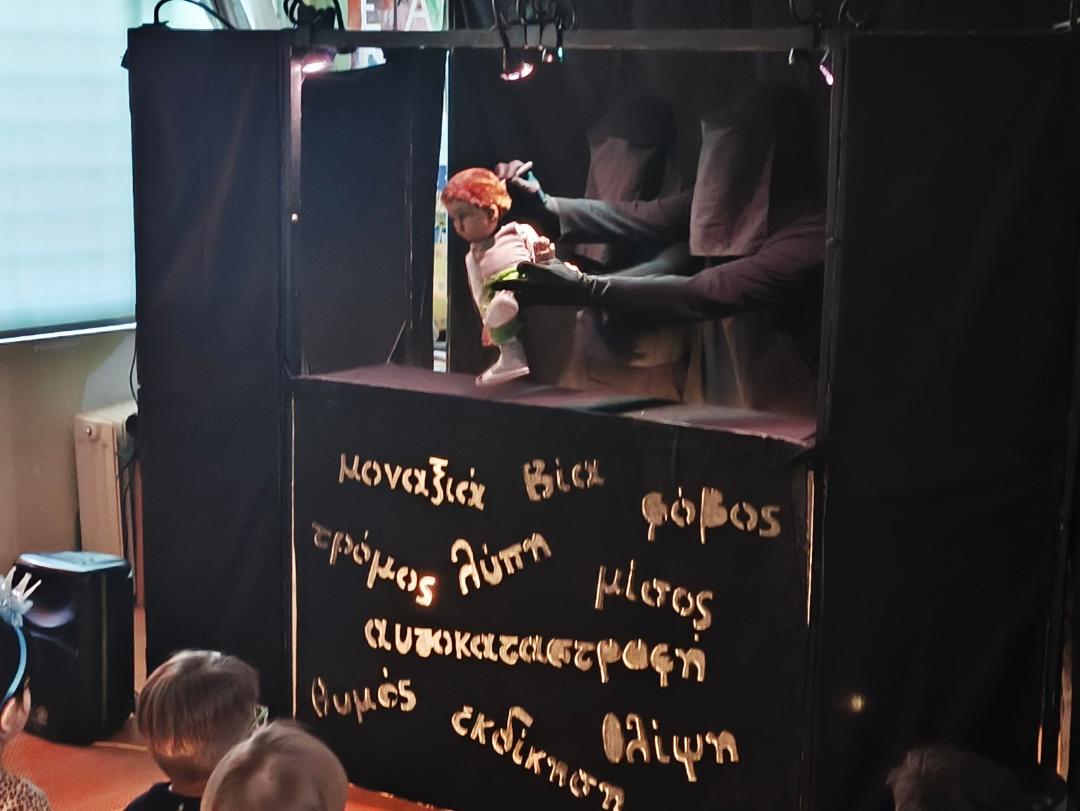 Ε Α
μοναξιά βία φόβος
τρόμος λύπη μίσος
αυτοκαταστροφή
θυμός εκδίκηση θλίψη